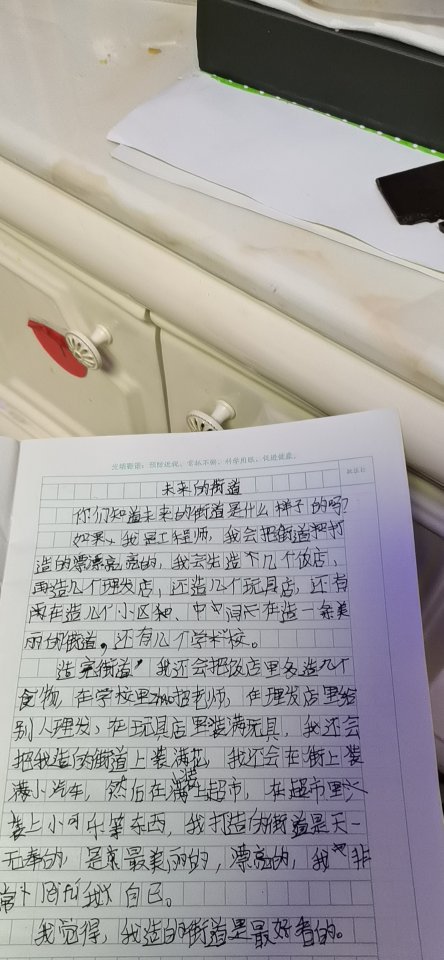 爱眼歌谣：预防近视，常抓不懈，科学用眼，促进健康。
未来的街道
你们知道未来的街道是什么样子的吗？
如果我是工程师，我会把街道把打
造的漂漂亮亮的，我会先造下几个饭店，
再造几个理发店，还造几个玩具店，还有
在造几个小区和、中间在造一条美
丽的街道，还有几个学校。
造完街道，我还会把饭店里多造几个
食物，在学校里招老师，在理发店里给
别人理发，在玩具店里装满玩具，我还会
把我造的街道上装满花，我还会在街上装
满小汽车，然后在装满超市，在超市里
装上小可乐等东西，我打造的街道是天一
无奉的，是最美丽的，漂亮的，我非
常自己。
我觉得，我造的街道是最好看的。